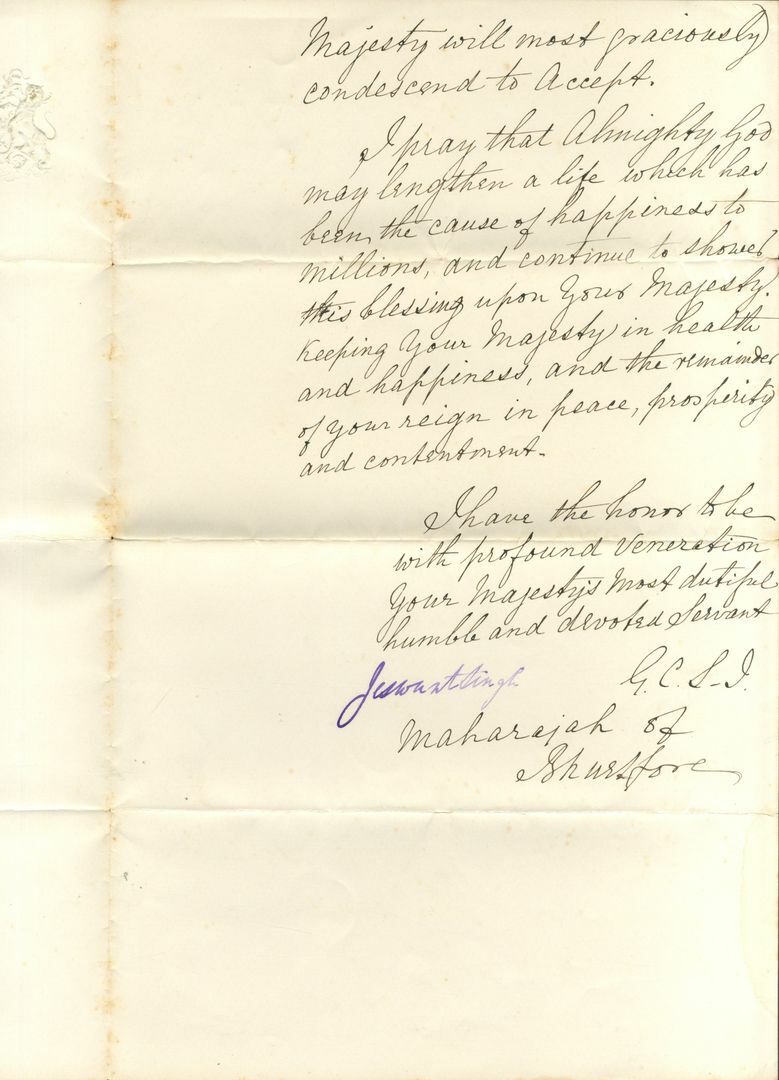 Majesty will most graciously
condescend to Accept.
I pray that Almighty God
may lengthen a life which has
been the cause of happiness to
millions, and continue to shower
this blessing upon Your Majesty.
Keeping Your Majesty in health
and happiness, and the remainder
of your reign in peace, prosperity
and contentment.
I have the honor to be
with profound veneration
Your Majesty's Most dutiful
humble and devoted Servant
Jeswuntsingh G.C.S.I.
Maharajah of
Bhurtpore